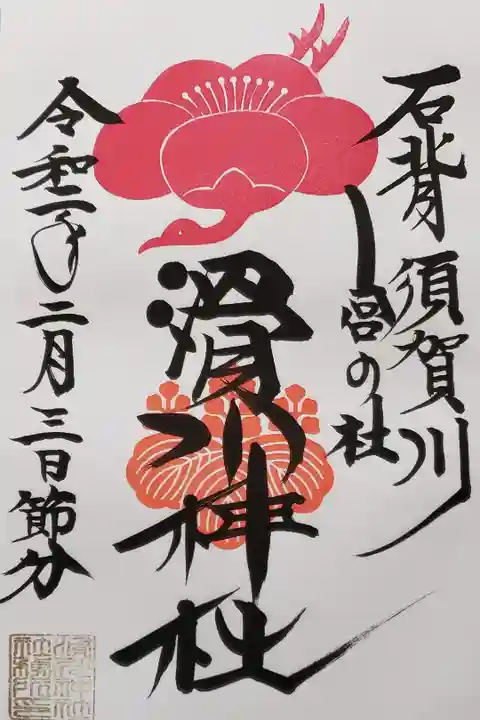 石背 須賀川
宮の杜
滑川神社
令和二年二月三日節分